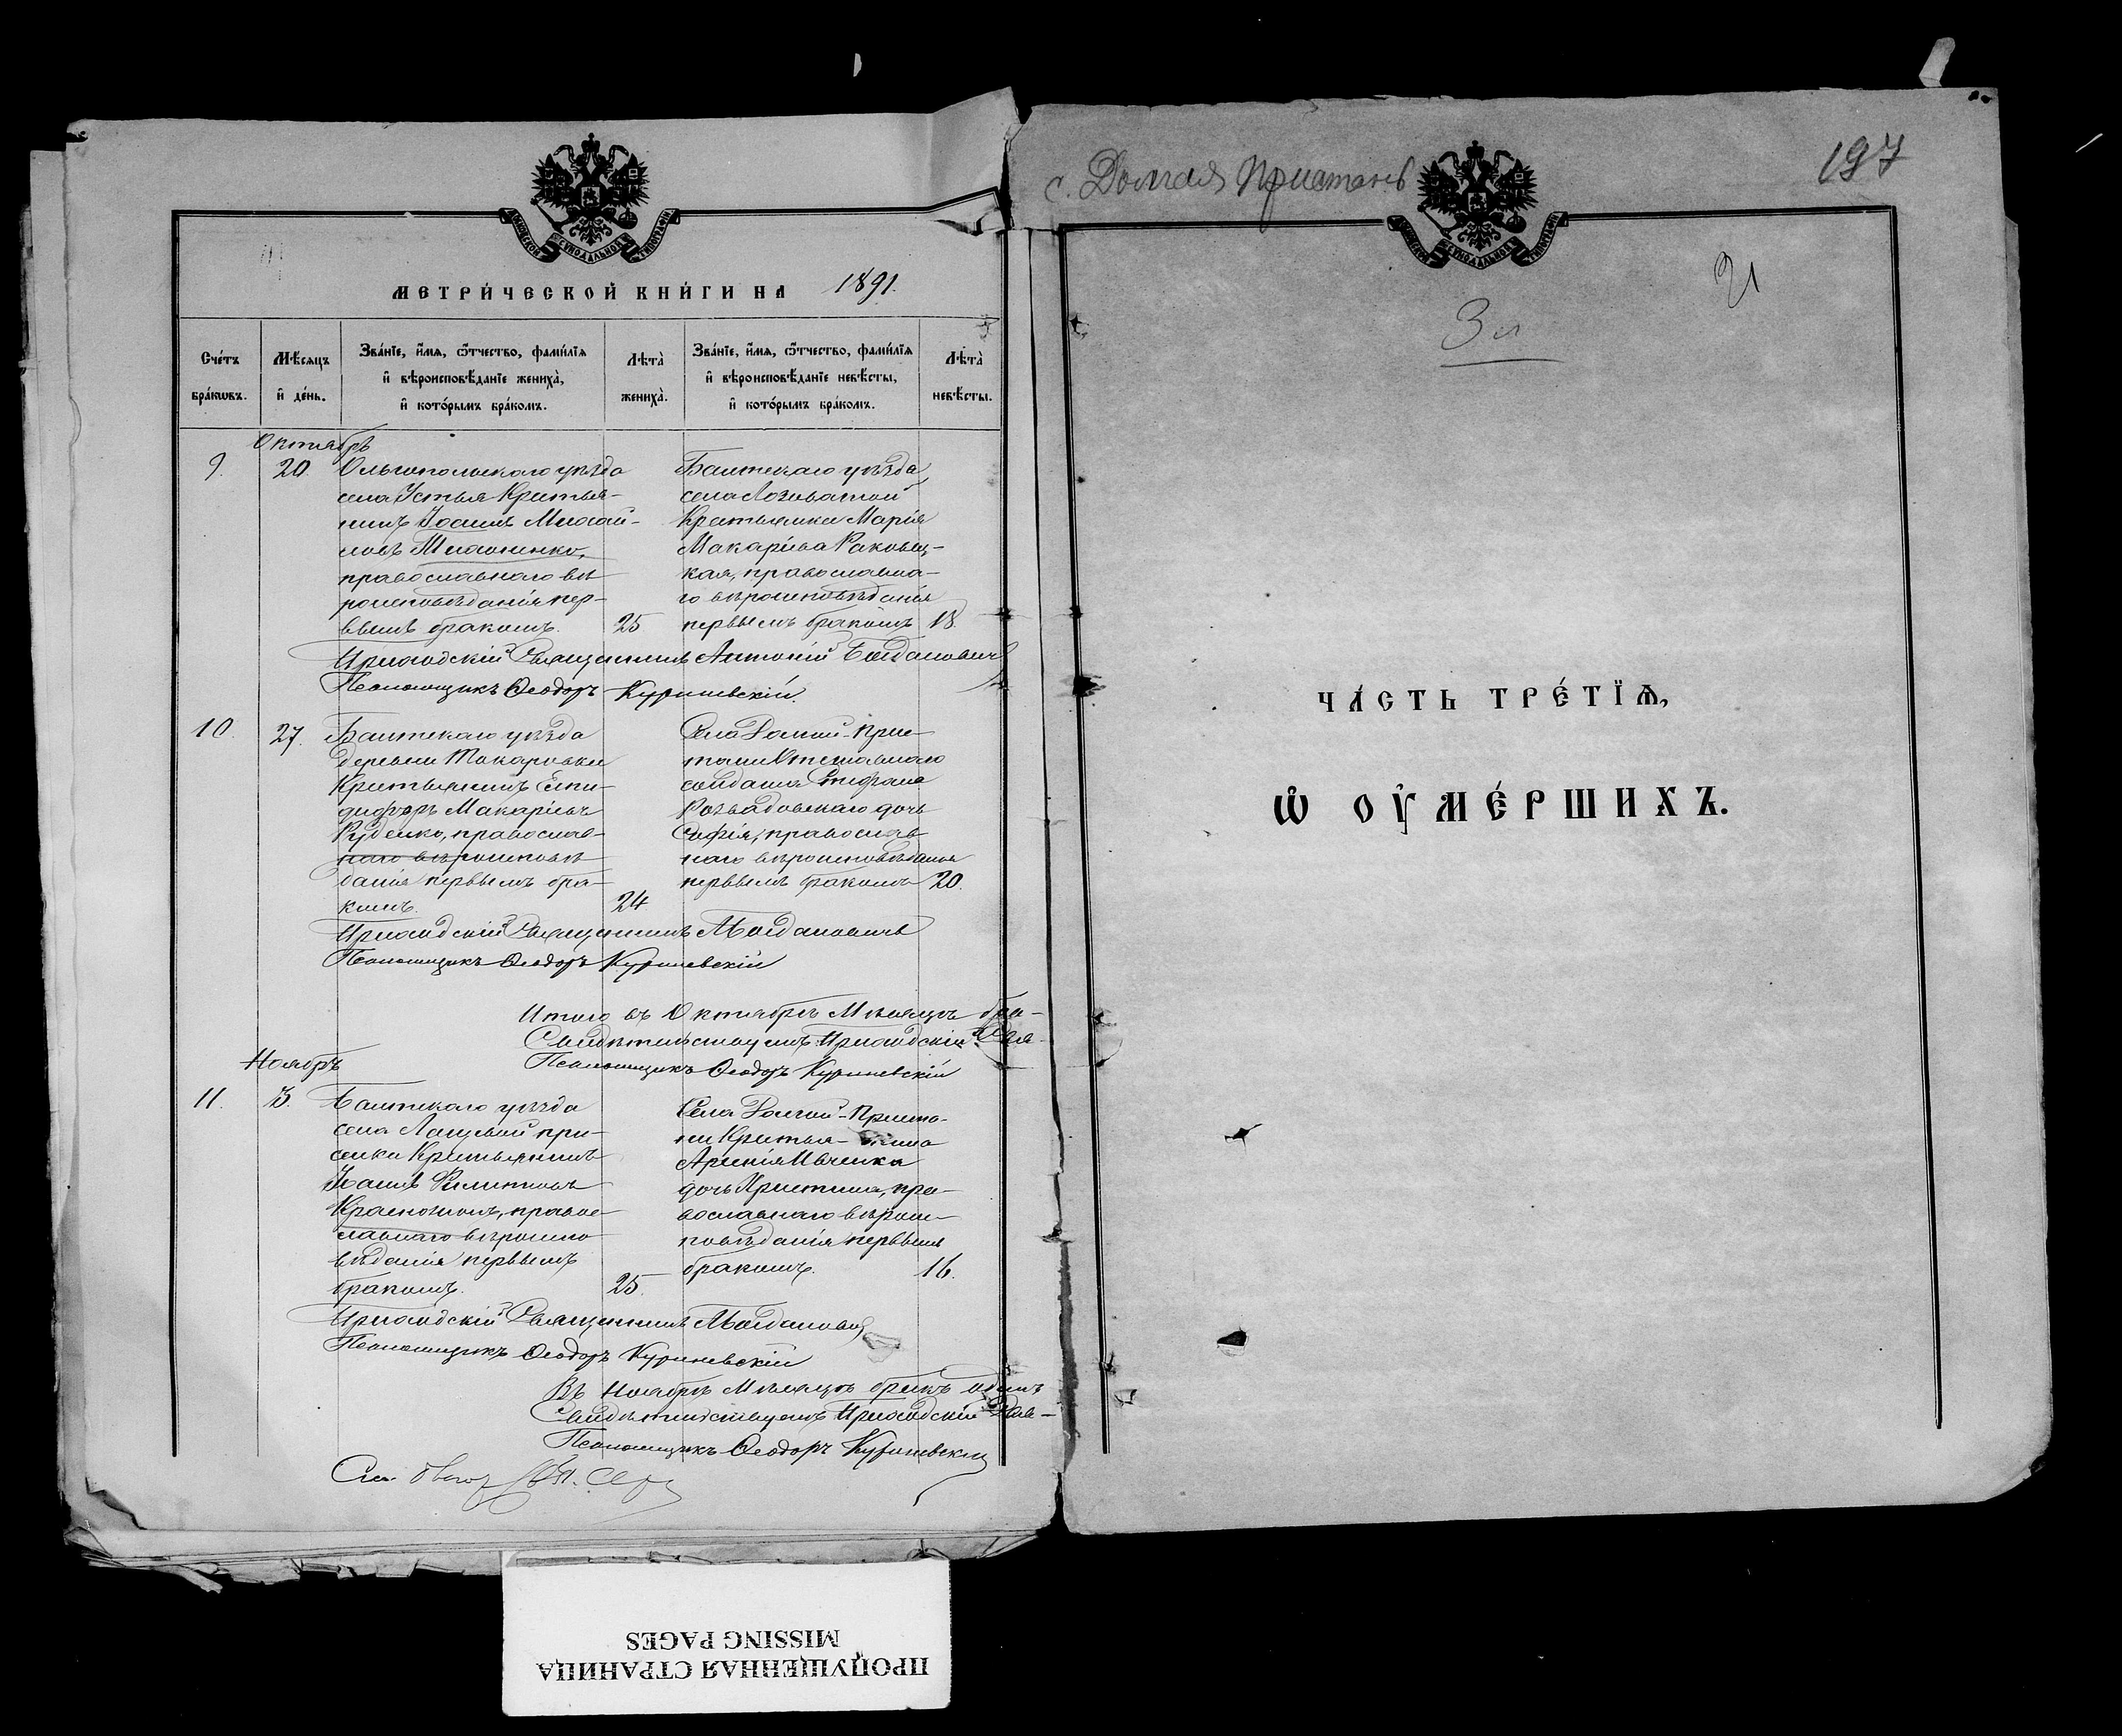 МЕТРИ́ЧЕСКОЙ КНИ́ГИ НА 1891.
Сче́тъ бра́кωвъ.
Мѣ́сяцъ и҆ де́нь.
Зва́нїе, и҆́мя, ѻ҆́тчество, фами́лїя и҆ вѣроисповѣ́данїе жениха̀, и҆ кото́рымъ бра́комъ.
Лѣта̀ жениха̀.
Зва́нїе, и҆́мя, ѻ҆́тчество, фами́лїя и҆ вѣроисповѣ́данїе невѣ́сты, и҆ кото́рымъ бра́комъ.
Лѣта̀ невѣ́сты.
Октябрь
9. 20
Ольгопольскаго уѣзда
села Устья Крестья-
нинъ Іоаннъ Михай-
ловъ
православнаго вѣ
роисповѣданія пер-
вымъ бракомъ. 25
Балтскаго уѣзда
села Лозоватой
Крестьянка Марія
Макаріева Раковец-
кая, православна-
го вѣроисповѣданія
первымъ бракомъ 18.
Приходскій Священникъ Антоній Богдановичъ
Псаломщикъ Ѳеодоръ Куриневскій.
10. 27.
Балтскаго уѣзда
деревни Токаровки
Крестьянинъ Епи-
дифоръ Макаріевъ
Руденко, православ-
наго вѣроисповѣ
данія первымъ бра-
комъ. 24
Села Долгой-Прис-
тани Отставнаго
солдата Стефана
Розвадовскаго дочь
Софія, православ-
наго вѣроисповѣданія
первымъ бракомъ 20.
Приходскій Священникъ А Богдановичъ
Псаломщикъ Ѳеодоръ Куриневскій
Итого въ Октябрѣ Мѣсяцѣ бра-
Свидѣтельствуемъ: Приходскій Свя-
Псаломщикъ Ѳеодоръ Куриневскій
Ноябрь
11. 3.
Балтскаго уѣзда
села
Крестьянинъ
Іоаннъ Филиповъ
правос-
лавнаго вѣроиспо
вѣданія первымъ
бракомъ. 25.
Села Долгой-Приста-
ни Крестья-нина
Арсенія Ивченка
дочь Христина, пра-
вославнаго вѣроис-
повѣданія первымъ
бракомъ. 16.
Приходскій Священникъ А Богдановичъ
Псаломщикъ Ѳеодоръ Куриневскій
Въ Ноябрѣ Мѣсяцѣ бракъ одинъ
Свидѣтельствуемъ: Приходскій Свя-
Псаломщикъ Ѳеодоръ Куриневскій
с. Долгая Пристань
197
21
3 л
ЧА́СТЬ ТРЕ́ТЇѦ,
Ѡ҆ ОУ҆МЕ́РШИХЪ.
ПРОПУЩЕННАЯ СТРАНИЦА
MISSING PAGES